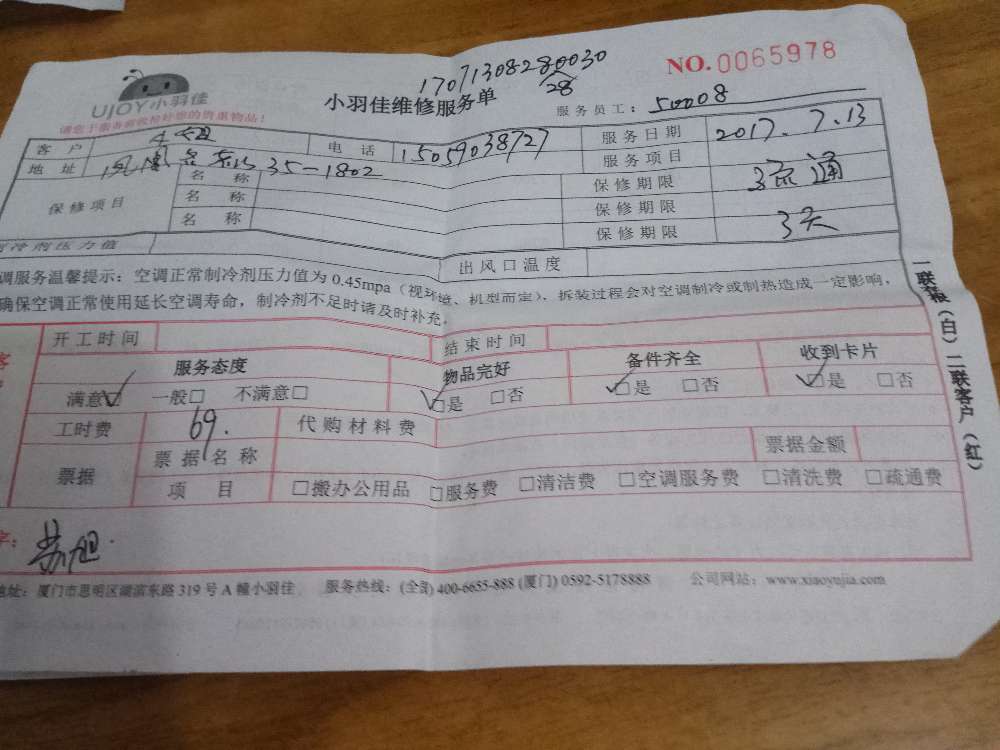 17071308280030
28
NO.0065978
UJOY小羽佳
小羽佳维修服务单
服务员工：50008
请您于服务前收检好您的贵重物品！
客户 电话 15059038727 服务日期 2017.7.13
地址 35-1802 服务项目 疏通
保修项目 名称 保修期限
名称 保修期限
名称 保修期限 3天
冷剂压力值 出风口温度
调服务温馨提示：空调正常制冷剂压力值为0.45mpa（视环境、机型而定），拆装过程会对空调制冷或制热造成一定影响，
确保空调正常使用延长空调寿命，制冷剂不足时请及时补充。
开工时间 结束时间
服务态度 物品完好 备件齐全 收到卡片
满意☑ 一般□ 不满意□ ☑是 □否 ☑是 □否 ☑是 □否
工时费 69. 代购材料费
票据 票据名称 票据金额
项目 □搬办公用品 □服务费 □清洁费 □空调服务费 □清洗费 □疏通费
字：
地址：厦门市思明区湖滨东路319号A幢小羽佳 服务热线：(全国) 400-6655-888 (厦门) 0592-5178888 公司网站：www.xiaoyujia.com
一联根（白）二联客户（红）